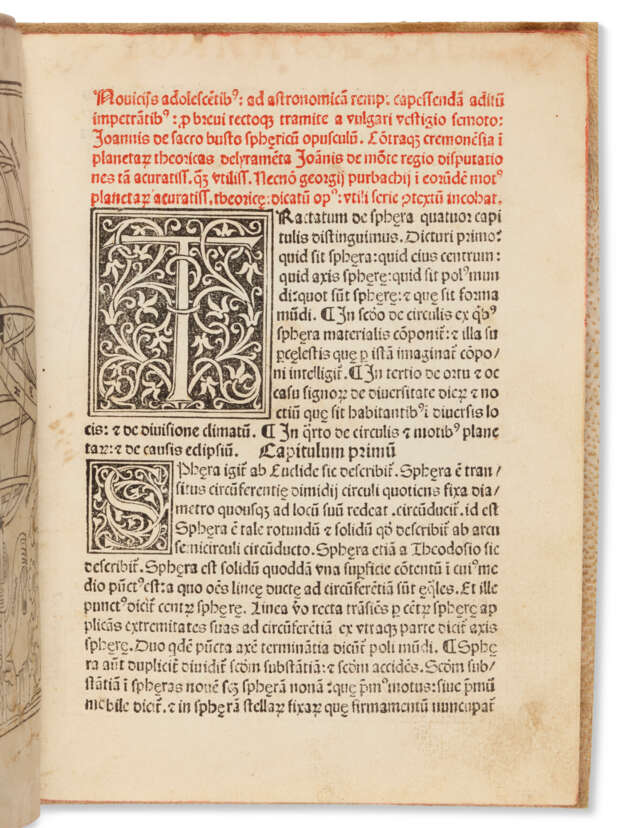 Nouicijs adolescẽtibꝰ: ad astronomicã remp: capessendã aditũ
impetrãtibꝰ: ꝓ breui rectoqꝫ tramite a vulgari vestigio semoto:
Joannis de sacro busto sphęricũ opusculũ. Cõtraqꝫ cremonẽsia ĩ
planetaꝝ theoricas delyramẽta Joãnis de mõte regio disputatio
nes tã acuratiss. qꝫ vtiliss. Necnõ georgij purbachij ĩ eorũdẽ motꝰ
planetaꝝ acuratiss. theoricę: dicatũ opꝰ: vtili serie ꝯtextũ incohat.
TRactatum de sphęra quatuor capi
tulis distinguimus. Dicturi primo:
quid sit sphęra: quid eius centrum:
quid axis spherę: quid sit polꝰ mun
di: quot sũt spherę: ⁊ quę sit forma
mũdi. ¶ In scďo de circulis ex qbꝰ
sphęra materialis cõponit̃: ⁊ illa su
ꝑcęlestis quę ꝑ istã imaginat̃ cõpo/
ni intelligit̃. ¶ In tertio de ortu ⁊ oc
casu signoꝝ ⁊ de diuersitate dieꝝ ⁊ no
ctiũ quę sit habitantibꝰ ĩ diuersis lo
cis: ⁊ de diuisione climatũ. ¶ In q̃rto de circulis ⁊ motibꝰ plane
taꝝ: ⁊ de causis eclipsiũ. Capitulum primũ
SPhęra igit̃ ab Euclide sic describit̃. Sphęra ẽ tran/
situs circũferentię dimidij circuli quotiens fixa dia/
metro quousqꝫ ad locũ suũ redeat. circũducit̃. id est
Sphęra ẽ tale rotundũ ⁊ solidũ qď describit̃ ab arcu
semicirculi circũducto. Sphęra etiã a Theodosio sic
describit̃. Sphęra est solidũ quoddã vna suꝑficie cõtentũ ĩ cuiꝰ me
dio pũctꝰ est: a quo oẽs lineę ductę ad circũferẽtiã sũt ęq̃les. Et ille
punctꝰ dicit̃ centꝝ spherę. Linea ṽo recta trãsiẽs ꝑ cẽtꝝ spherę ap
plicãs extremitates suas ad circũferẽtiã ex vtraqꝫ parte dicit̃ axis
spherę. Duo qdẽ pũcta axẽ terminãtia dicũt̃ poli mũdi. ¶ Sphę
ra aũt duplicit̃ diuidit̃ scďm substãtiã: ⁊ scďm accidẽs. Scďm sub/
stãtiã ĩ spheras nouẽ scꝫ sphęrã nonã: quę pᵐꝰ motus: siue pᵐũ
mobile dicit̃. ⁊ in sphęrã stellaꝝ fixaꝝ quę firmamẽtũ nuncupat̃